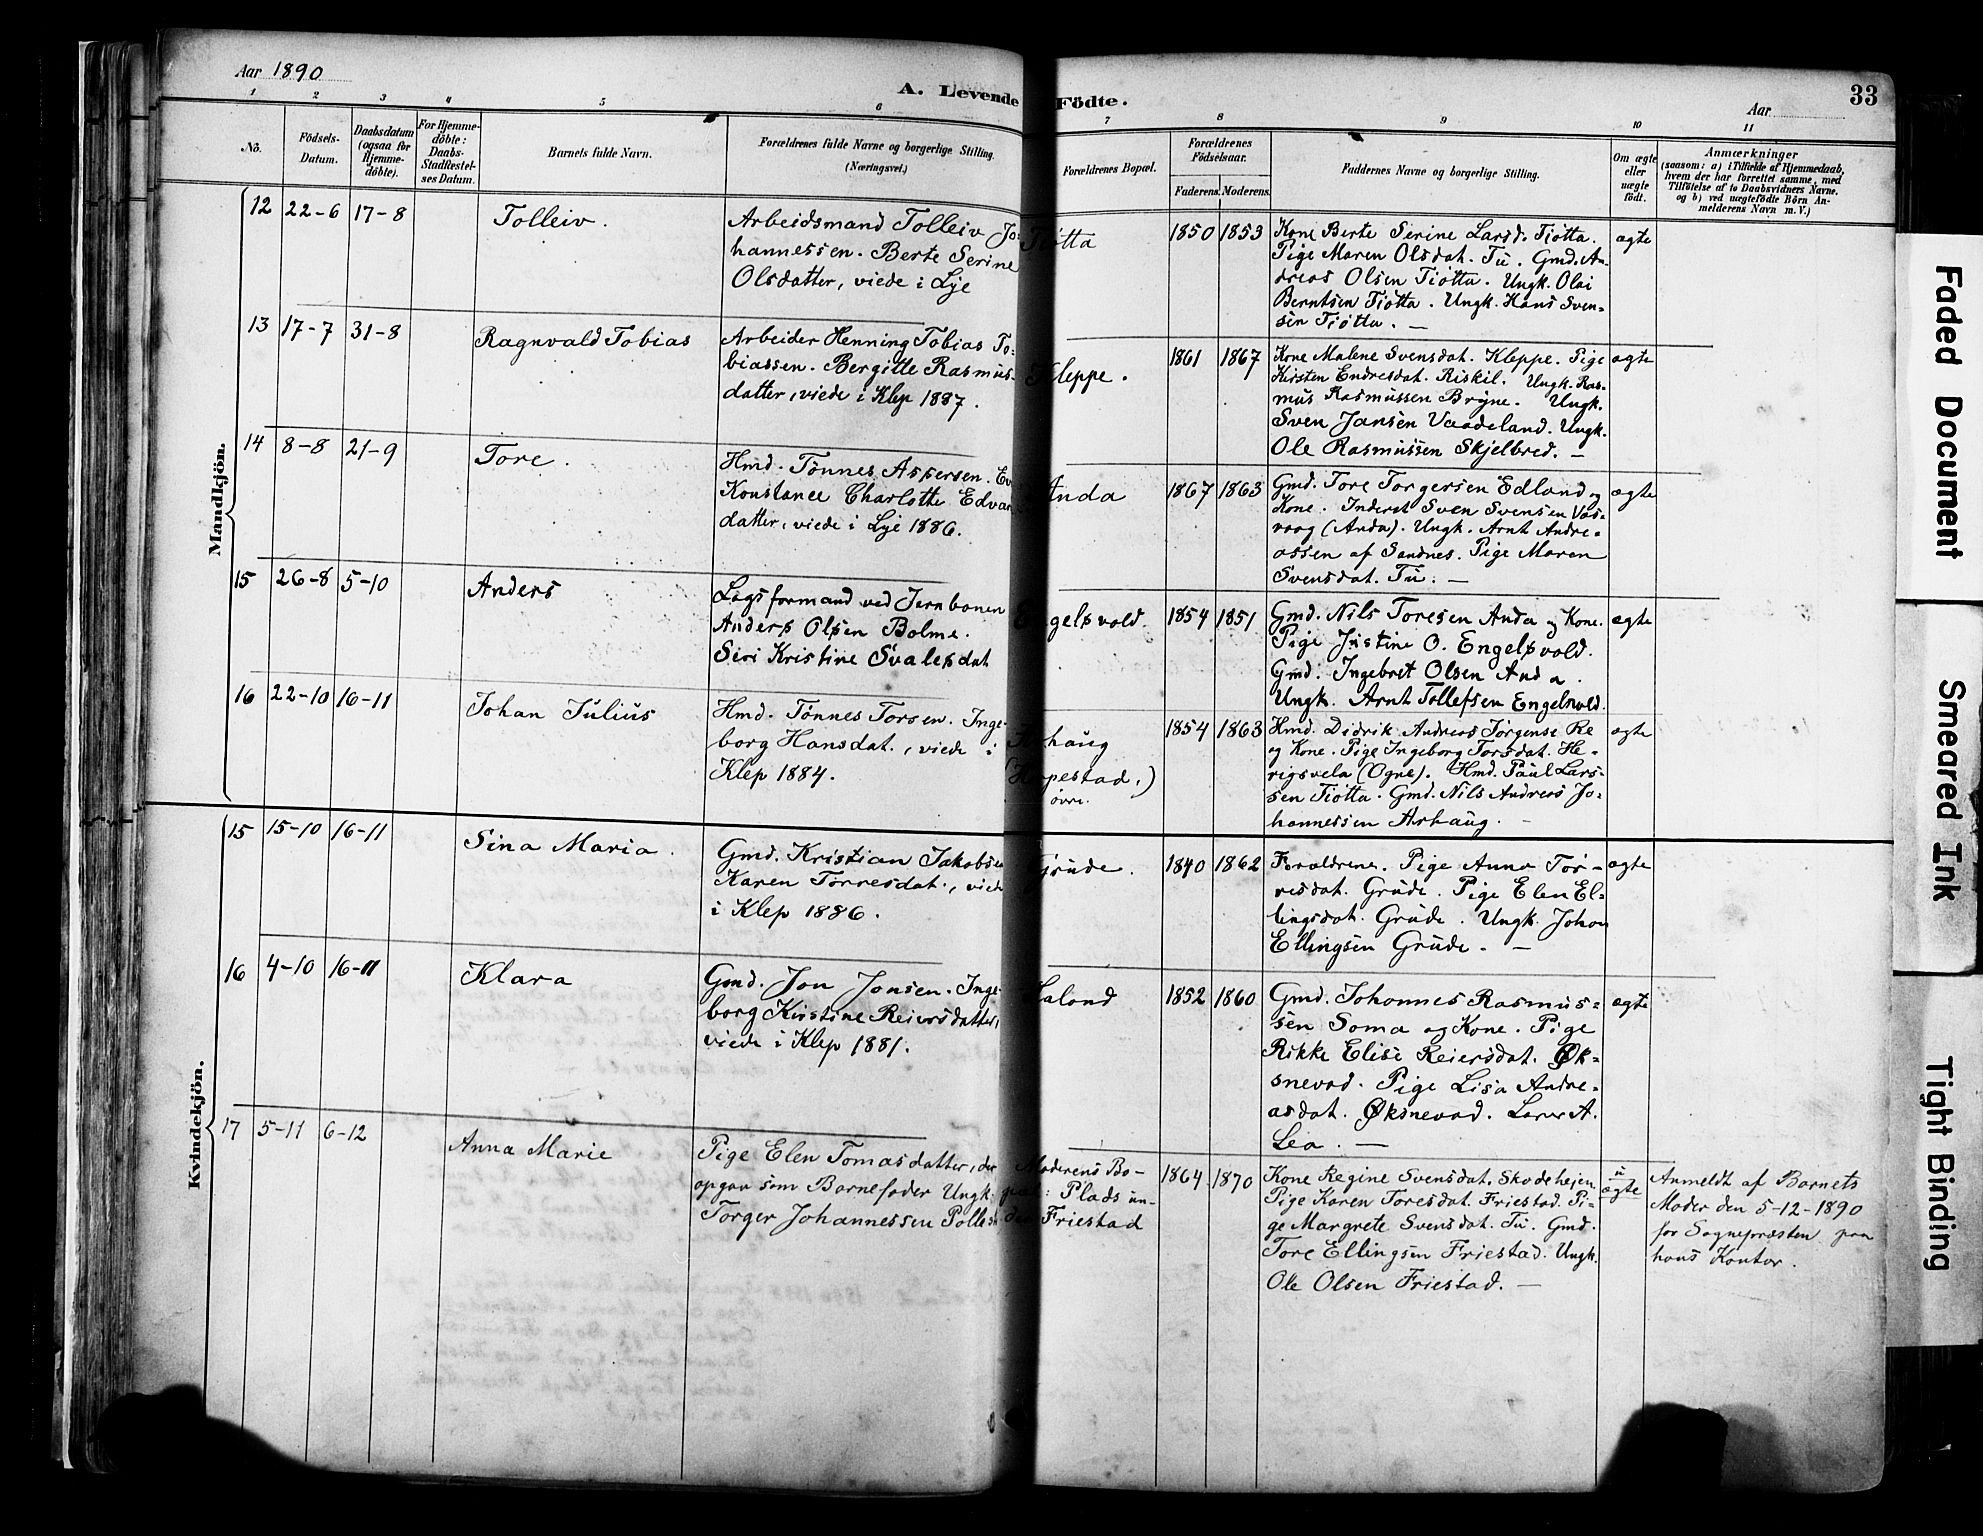 Aar 1890
A. Levende Födte.
Aar
33
1 2 3 4 5 6 7 8 9 10 11
Nô.
Födsels-
Datum.
Daabsdatum
(ogsaa for
Hjemme-
döbte).
For Hjemme-
döbte:
Daabs-
Stadfæstel-
ses Datum.
Barnets fulde Navn.
Forældrenes fulde Navne og borgerlige Stilling.
(Næringsvei.)
Forældrenes Bopæl.
Forældrenes
Födselsaar.
Faderens. Moderens.
Faddernes Navne og borgerlige Stilling.
Om ægte
eller
uægte
födt.
Anmærkninger
(saasom: a) i Tilfælde af Hjemmedaab,
hvem der har forrettet samme, med
Tilföielse af to Daabsvidners Navne,
og b) ved uægtefödte Börn An-
melderens Navn m. V.)
Mandkjön.
12 22-6 17-8
Tolleiv.
Arbeidsmand Tolleiv Jo=
hannessen. Berte Serine
Olsdatter, viede i Lye
Tiøtta
1850 1853
Kone Berte Serine Larsd. Tiøtta.
Pige Maren Olsdat. Tu. Gmd. An-
dreas Olsen Tiøtta. Ungk. Olai
Berntsen Tiøtta. Ungk. Hans Sven=
sen Tiøtta. —
ægte
13 17-7 31-8
Ragnvald Tobias
Arbeider Henning Tobias To=
biassen. Bergitte Rasmus-
datter, viede i Klep 1887.
Kleppe.
1861 1867
Kone Malene Svensdat. Kleppe. Pige
Kirsten Endresdat. Riskil. Ungk. Ras-
mus Rasmussen Bryne. Ungk.
Sven Jansen Vaadeland. Ungk.
Ole Rasmussen Skjelbred. —
ægte
14 8-8 21-9
Tore.
Hmd. Tønnes Aspersen.
Konstance Charlotte
datter, viede i Lye 1886.
Anda
1867 1863
Gmd. Tore Torgersen Edland og
Kone. Inderst Sven Svensen Vas-
vaag (Anda). Ungk. Arnt Andre-
assen af Sandnes. Pige Maren
Svensdat. Tu. —
ægte
15 26-8 5-10
Anders
Lagsformand ved Jernbanen
Anders Olsen Bolme.
Siri Kristine Svalesdat
Engelsvold.
1854 1851
Gmd. Nils Toresen Anda og Kone.
Pige Justine O. Engelsvold.
Gmd. Ingebret Olsen Anda.
Ungk. Arnt Tollefsen Engelsvold.
ægte
16 22-10 16-11
Johan Julius
Hmd. Tønnes Torsen. Inge-
borg Hansdat., viede i
Klep 1884.
Arhaug
(Hapestad,)
øvre.
1854 1863
Hmd. Didrik Andreas Jørgense Re
og Kone. Pige Ingeborg Torsdat. He-
rigsvela (Ogne). Hmd. Paul Lars-
sen Tiøtta. Gmd. Nils Andreas Jo=
hannessen Arhaug. -
ægte
Kvindekjön.
15 15-10 16-11
Sina Maria.
Gmd. Kristian Jakobsen
Karen Tørresdat., viede
i Klep 1886.
Grude.
1840 1862
Forældrene. Pige Anna Tør-
resdat. Grude. Pige Elen El=
lingsdat. Grude. Ungk. Johan
Ellingsen Grude. —
ægte
16 4-10 16-11
Klara
Gmd. Jon Jonsen. Inge-
borg Kirstine Reiersdatter,
viede i Klep 1881.
Haland
1852 1860
Gmd. Johannes Rasmus=
sen Soma og Kone. Pige
Rikke Elise Reiersdat. Øk=
snevad. Pige Lisa Andre-
asdat. Øksnevad. Lærer A.
Lea. —
ægte
17 5-11 6-12
Anna Marie
Pige Elen Tomasdatter, der
opgav som Barnefader Ungk.
Torger Johannessen Pollest
Moderens Bo-
pæl: Plads un-
der Friestad
1864 1870
Kone Regine Svensdat. Skodehejen
Pige Karen Toresdat. Friestad. Pi-
ge Margrete Svensdat. Tu. Gmd.
Tore Ellingsen Friestad. Ungk.
Ole Olsen Friestad. —
u
ægte
Anmeldt af Barnets
Moder den 5-12-1890
for Sognepræsten paa
hans Kontor.
Faded Document
Smeared Ink
Tight Binding